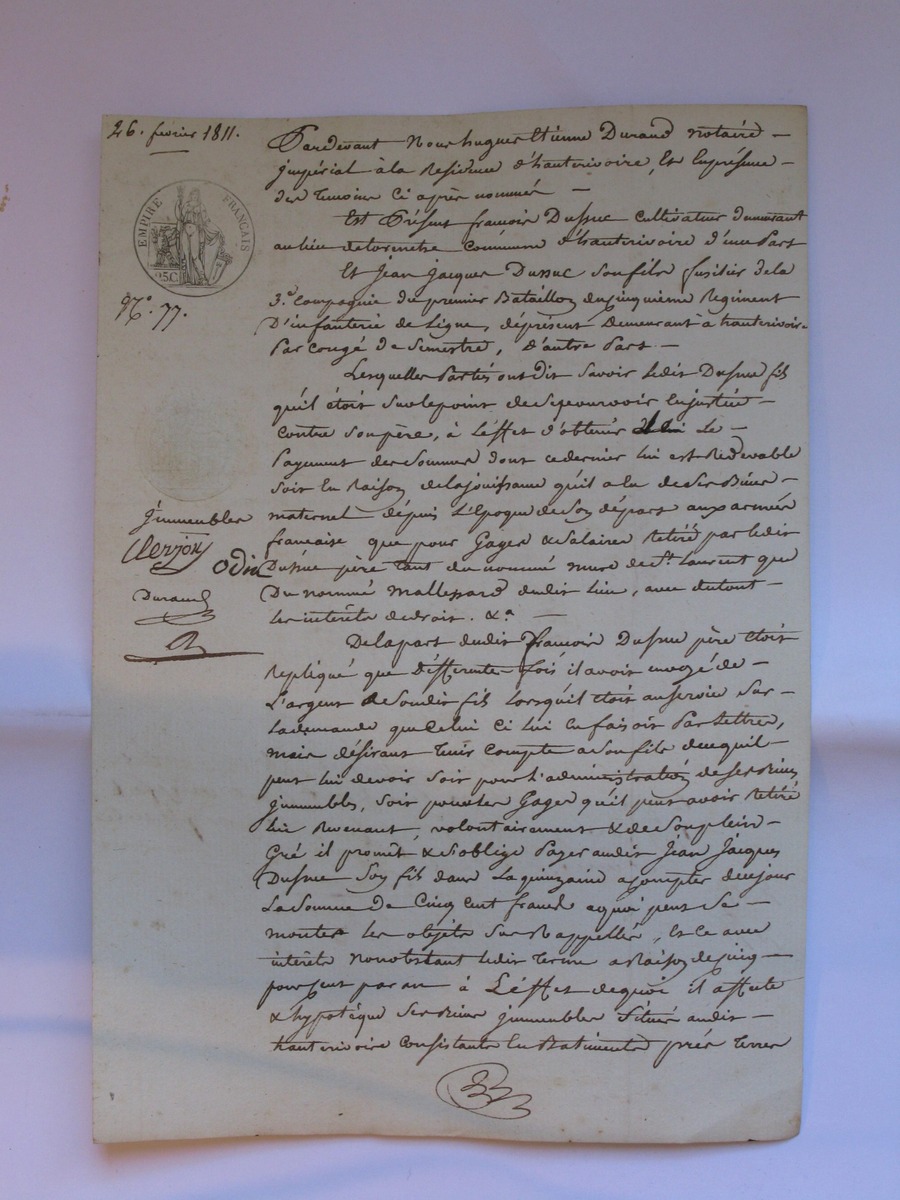 26. février 1811.
EMPIRE FRANÇAIS
25C.
N.° 77.
immeubles
Clerjon
odin
Durand
Pardevant Nous hugues Etienne Durand notaire
jmpérial à la Residence d'hauterivoire, Et En présence
des temoins Ci après nommés
Est Présent françois Dussuc cultivateur demeurant
au lieu de commune d'hauterivoire d'une Part
Et jean jacques Dussuc son fils fusilier de la
3.e Compagnie du premier Bataillon du cinquième Regiment
D'infanterie de Ligne, déprésent Demeurant à hauterivoire
Par congé de semestre, d'autre Part
Lesquelles Parties ont dit savoir ledit Dussuc fils
qu'il étoit sur le point de se pourvoir en justice
contre son père, à L'effet d'obtenir Le
Payement des sommes dont ce dernier lui est Redevable
soit En Raison de la jouissance qu'il a Eu de ses Biens
maternel dépuis L'Epoque de son départ aux armées
francaise que pour Gages & Salaires Retiré par ledit
Dussuc père tant du nommé mure de St. Laurent que
Du nommé Mallessard dudit lieu, avec du tout
les intérêts de droit. &a.
De la part dudit françois Dussuc père étoit
repliqué que différentes fois il avoit envoyé de
L'argent a son dit fils lorsqu'il étoit au service sur
la demande que celui Ci lui En faisoit Par Lettres,
mais désirant tenir compte a son fils de ce qu'il
peut lui devoir soit pour l'administration de ses Biens
jmmeubles, soit pour les Gages qu'il peut avoir Retiré
lui Revenant, volontairement & de son plein
Gré il promet & s'oblige Payer audit jean jacques
Dussuc son fils dans La quinzaine a compter de ce jour
La somme de Cinq cent francs a quoi peut se
monter les objets sus Rappellés, Et ce avec
intérêts nonobstant ledit terme a Raison de cinq
pour cent par an à L'effet de quoi il affecte
& hypotèque ses Biens jmmeubles situés audit
hauterivoire Consistants En Batiments prés terres